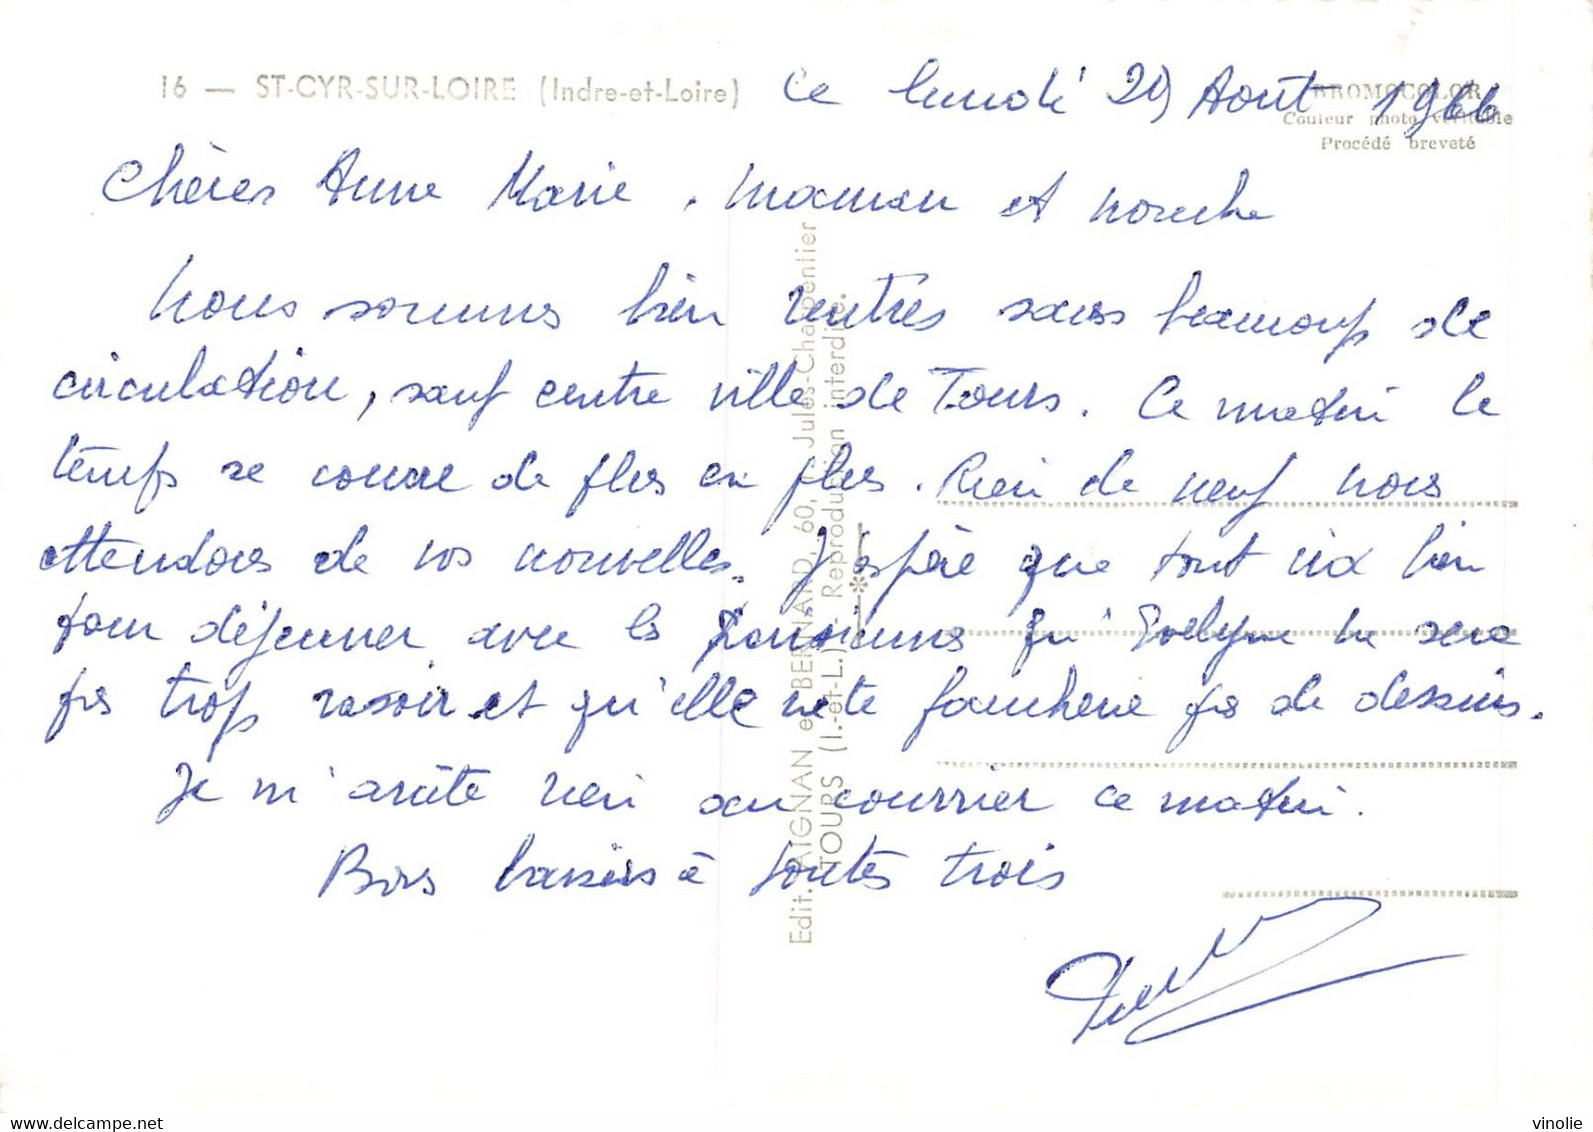 16 — ST-CYR-SUR-LOIRE (Indre-et-Loire)
BROMOCOLOR
Couleur photo véritable
Procédé breveté
Ce lundi 29 Aout 1966
Chères Anne Marie, maman et
Nous sommes bien rentrés sans beaucoup de
circulation, sauf centre ville de Tours. Ce matin le
temps se couvre de plus en plus. Rien de neuf nous
attendons de vos nouvelles. J'espère que tout ira bien
pour déjeuner avec les qu'Evelyne ne sera
pas trop rasoir et qu'elle ne te pas de dessins.
Je m'arrête rien au courrier ce matin.
Bons baisers à toutes trois
Edit. VAIGNAN et BERNARD, 60, r. Jules-Charpentier
TOURS (I.-et-L.) Reproduction interdite.
delcampe.net
vinolie